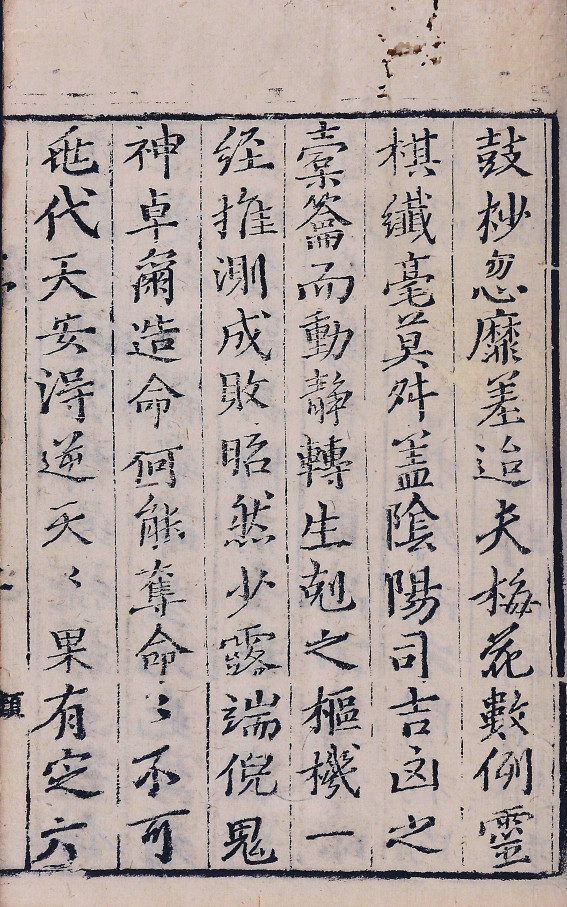 鼓杪忽靡差迨夫梅花數例靈
棋纖毫莫舛盖陰陽司吉凶之
橐籥而動静轉生剋之樞機一
经推測成敗昭然少露端倪鬼
神卓爾造命何能奪命〻不可
逃代天安淂逆天〻果有定六